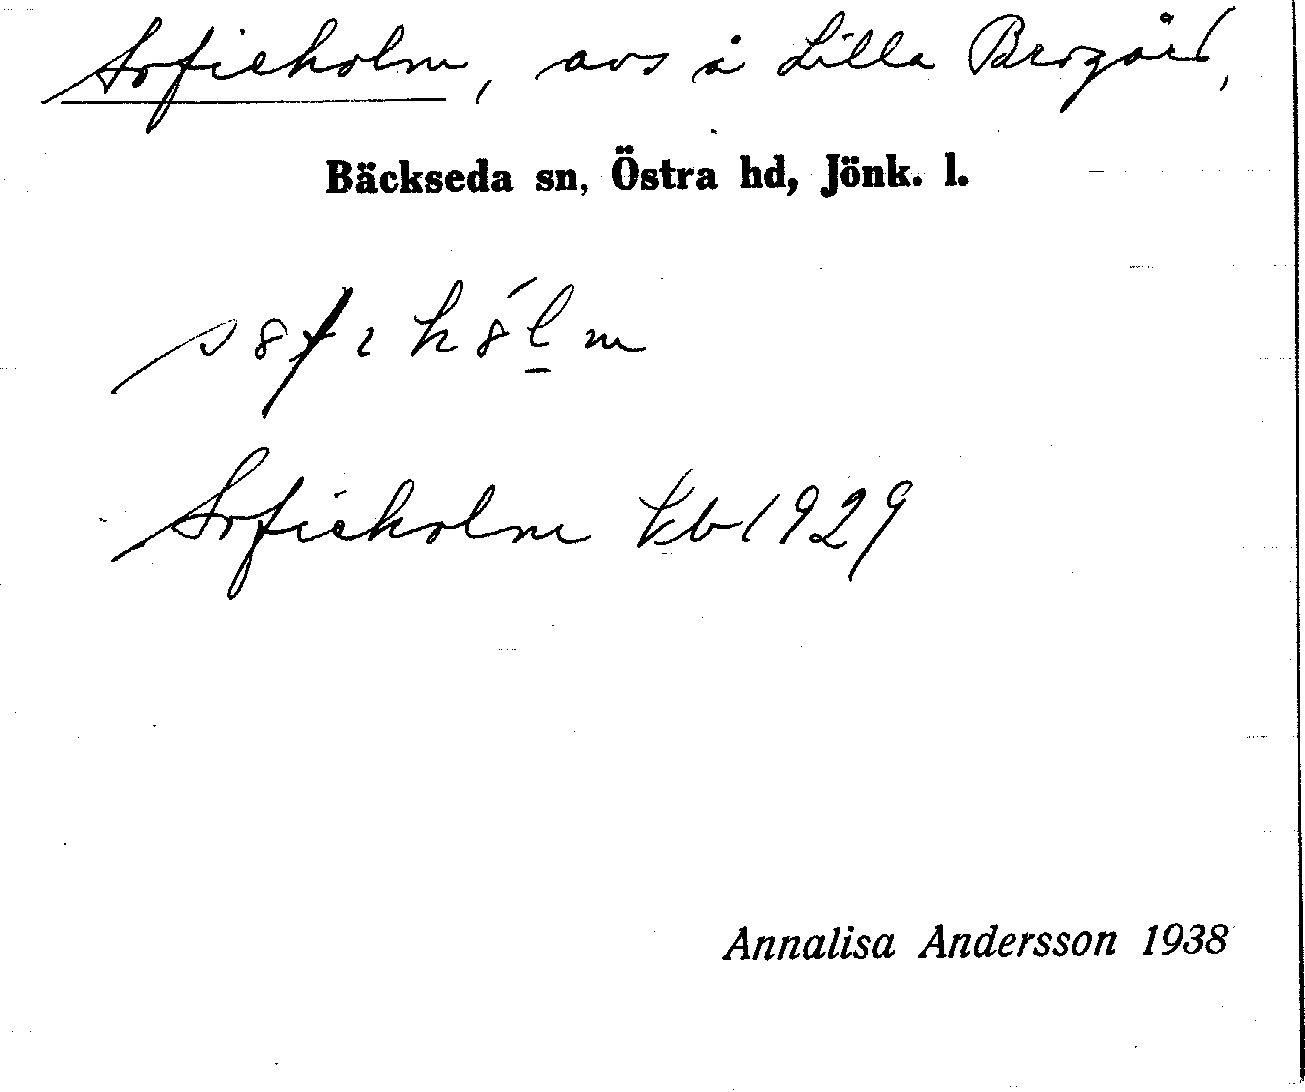 Sofieholm, avs å Lilla Bergård,
Bäckseda sn, Östra hd, Jönk. l.
Sofieholm kb 1929
Annalisa Andersson 1938